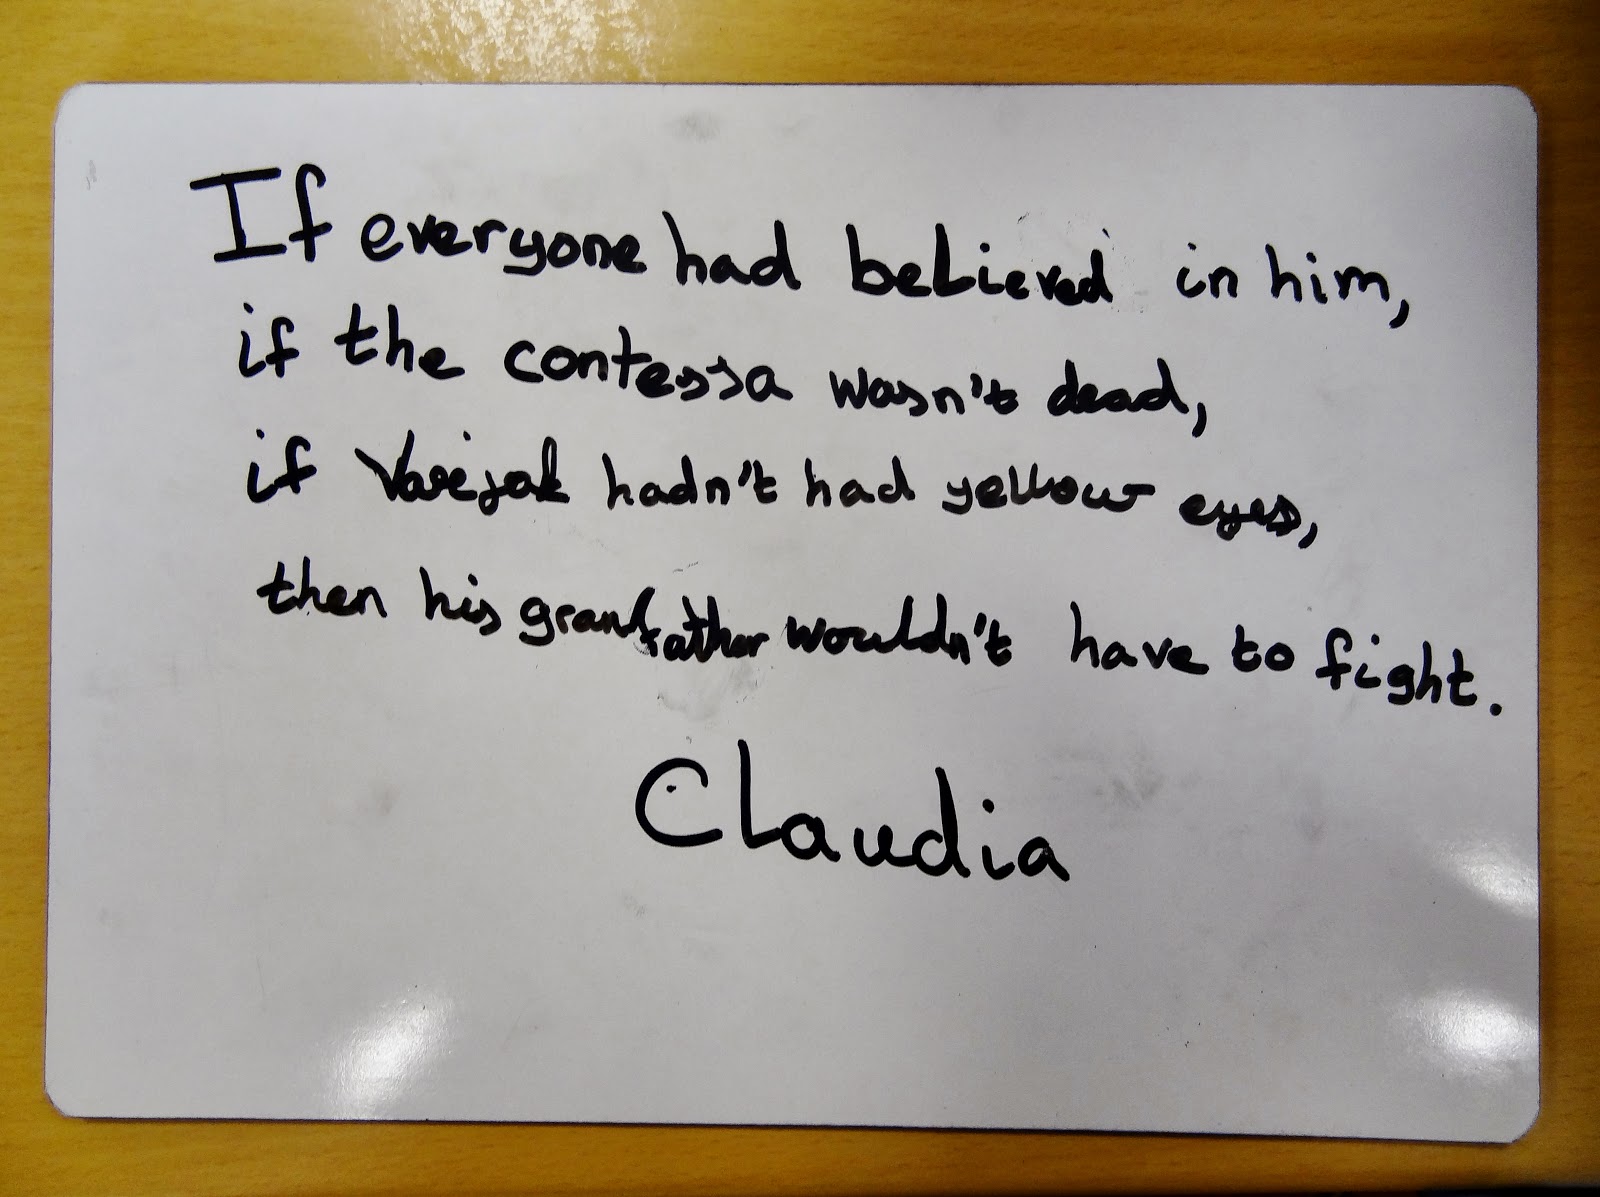 If everyone had believed in him,
if the contessa wasn't dead,
if Varejak hadn't had yellow eyes,
then his grandfather wouldn't have to fight.
Claudia